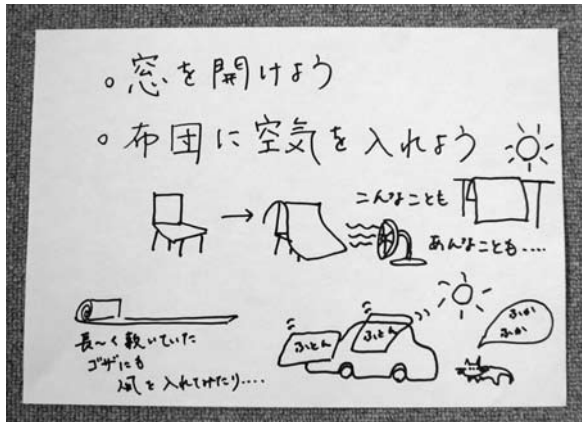 。窓を開けよう
。布団に空気を入れよう
こんなことも
あんなことも....
長〜く敷いていた
ゴザにも
風を入れてみたり....
ふとん
ふとん
ふか
ふか